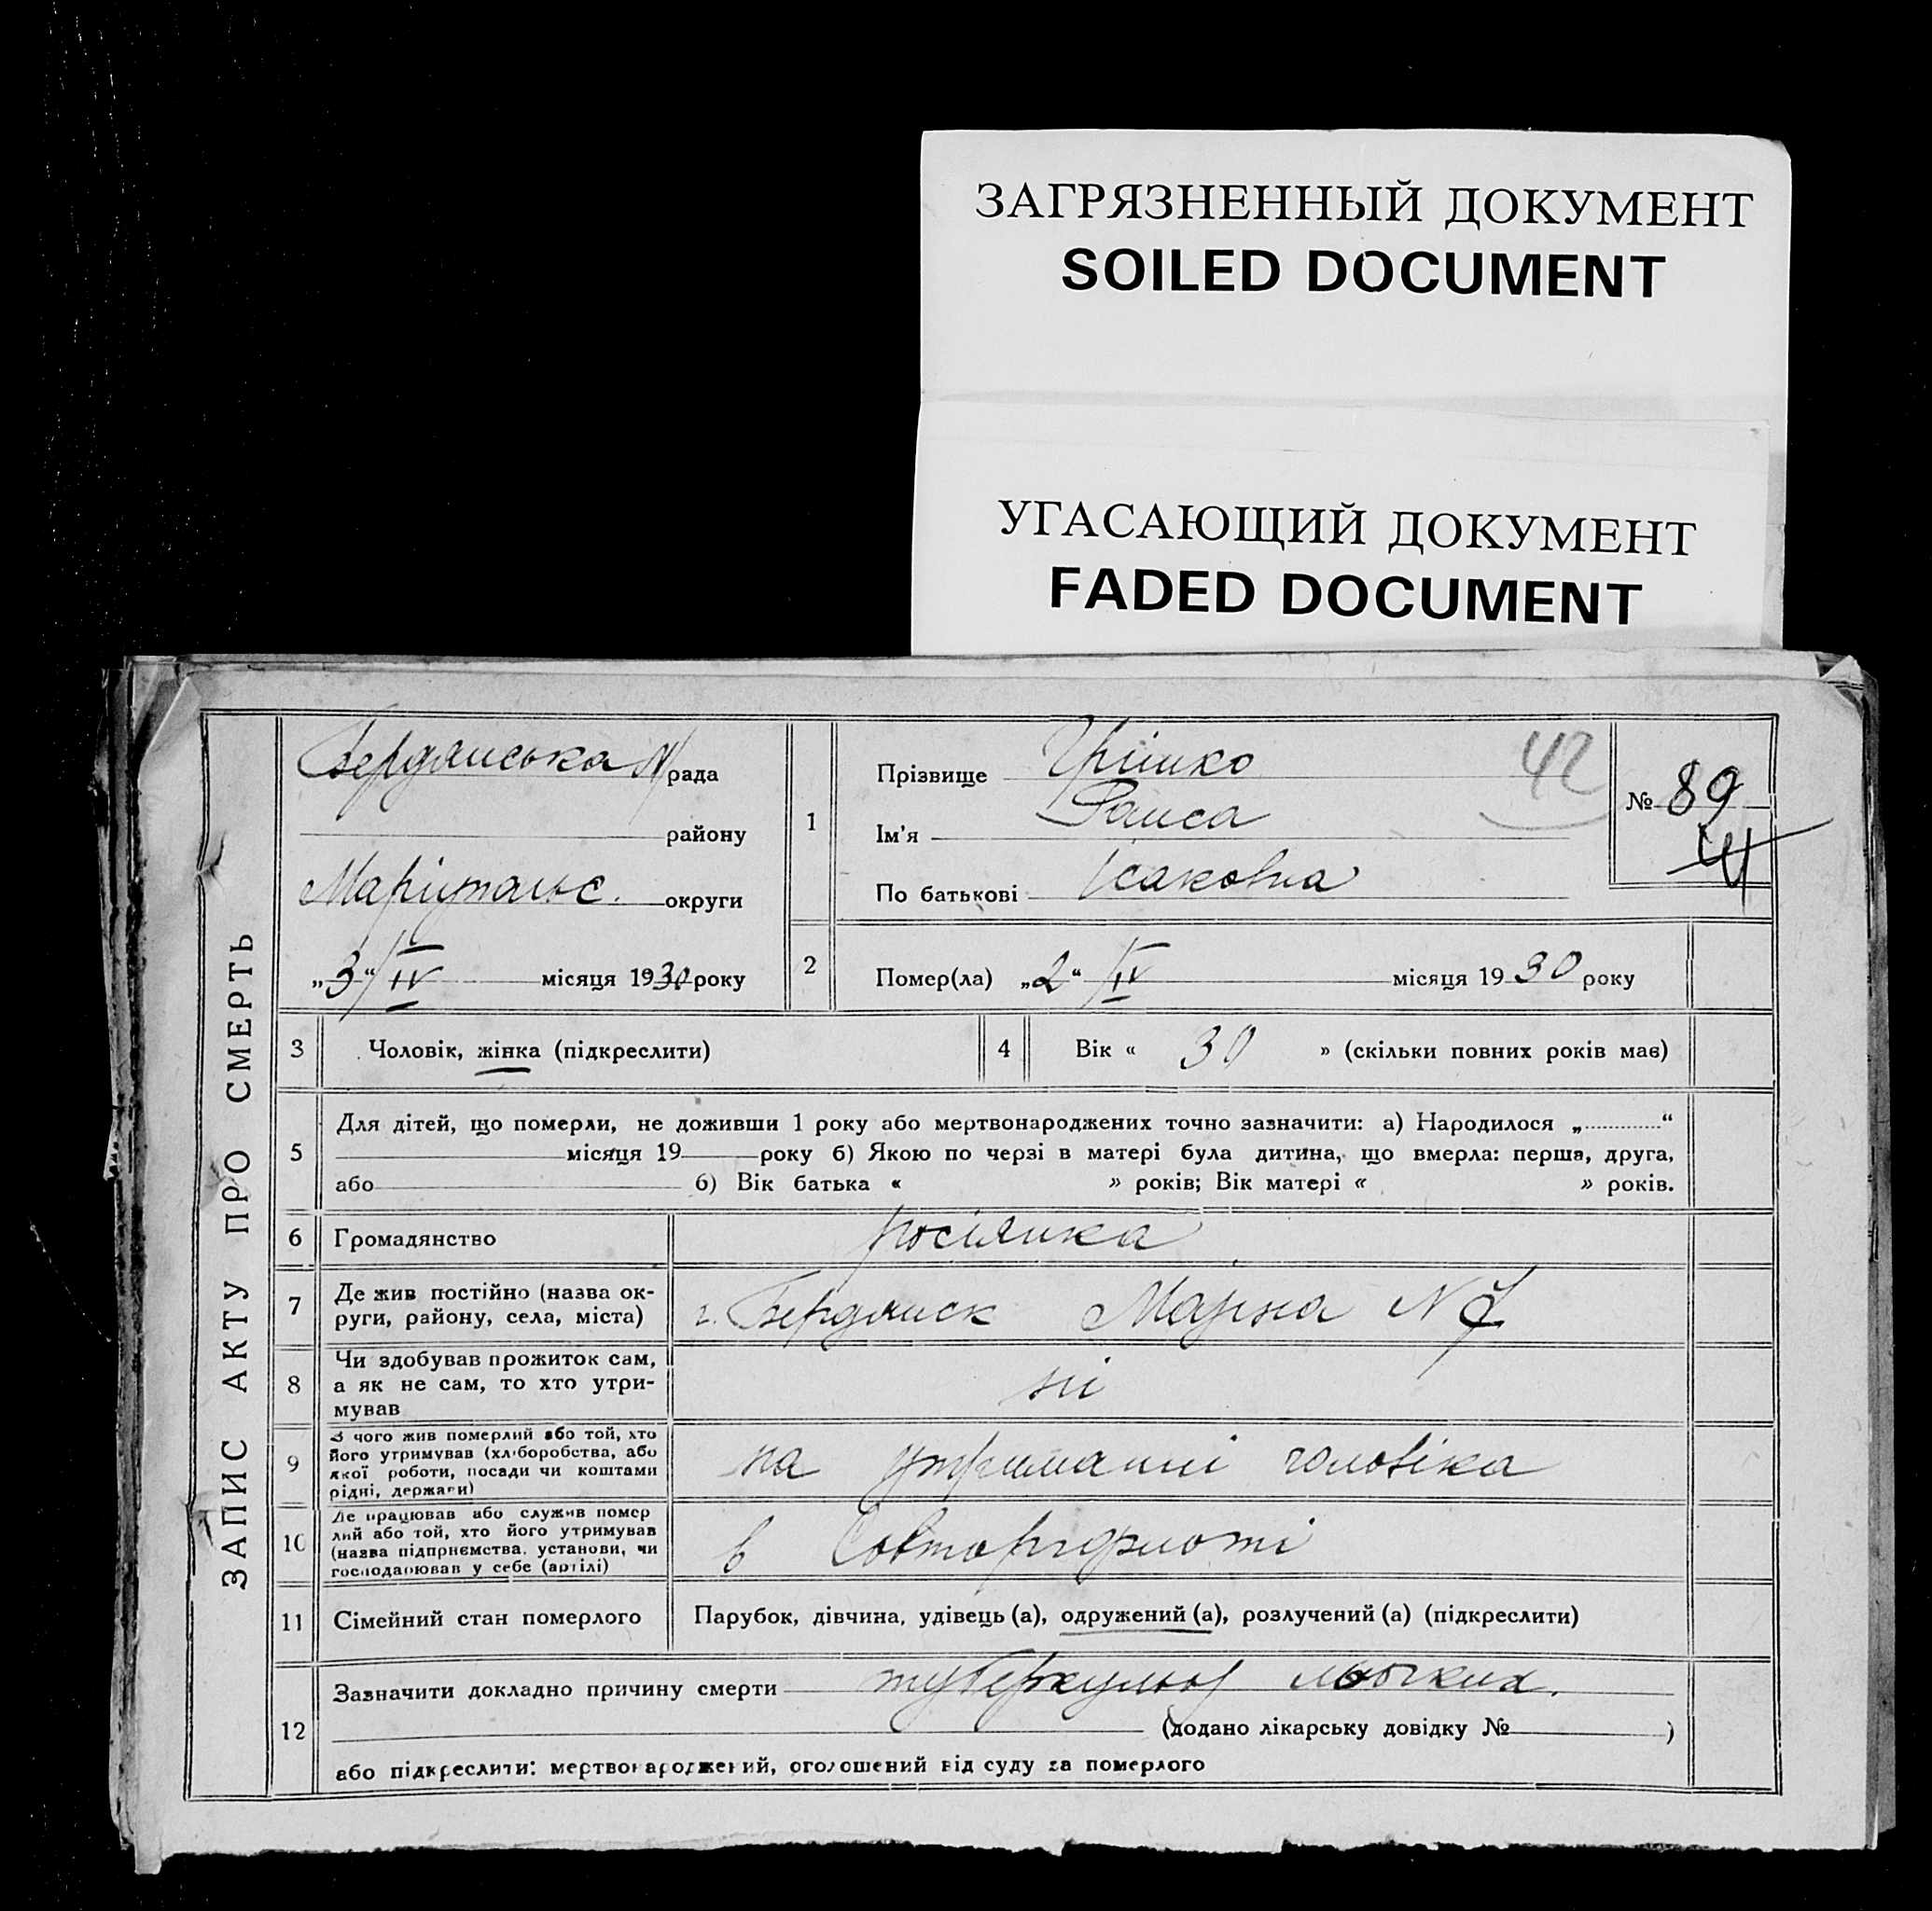 ЗАГРЯЗНЕННЫЙ ДОКУМЕНТ
SOILED DOCUMENT
УГАСАЮЩИЙ ДОКУМЕНТ
FADED DOCUMENT
ЗАПИС АКТУ ПРО СМЕРТЬ
Бердянська м/рада
району
Маріупольс. округи
„3“/IV місяця 1930 року
1
Прізвище Грішко
42
Ім'я Раиса
По батькові Ісаковна
№ 89
2
Помер(ла) „2“/IV місяця 1930 року
3 Чоловік, жінка (підкреслити)
4 Вік « 30 » (скільки повних років має)
5 Для дітей, що померли, не доживши 1 року або мертвонароджених точно зазначити: а) Народилося „ “
місяця 19 року б) Якою по черзі в матері була дитина, що вмерла: перша, друга,
або б) Вік батька « » років; Вік матері « » років.
6 Громадянство росіянка
7 Де жив постійно (назва ок-
руги, району, села, міста) г. Бердянск №7
8 Чи здобував прожиток сам,
а як не сам, то хто утри-
мував
ні
9 З чого жив померлий або той, хто
його утримував (хліборобства, або
якої роботи, посади чи коштами
рідні, держави)
на утриманні чоловіка
10 Де працював або служив помер
лий або той, хто його утримував
(назва підприємства, установи, чи
господарював у себе (артілі)
в Совторгфлоті
11 Сімейний стан померлого Парубок, дівчина, удівець (а), одружений (а), розлучений (а) (підкреслити)
12 Зазначити докладно причину смерти туберкульоз льогких.
(додано лікарську довідку № )
або підкреслити: мертвонароджений, оголошений від суду за померлого